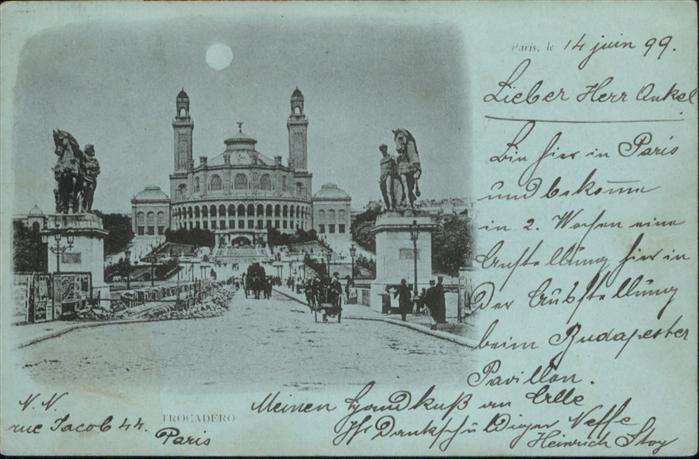 Paris, le 14 juin 99.
Lieber Herr Onkel
Bin hier in Paris
und bekomme
in 2. Wochen eine
Anstellung hier in
der Ausstellung
beim Budapester
Pavillon.
Meinen Handkuß an Alle
Ihr Dankschuldiger Neffe
Heinrich
N. N.
rue Jacob 44.
Paris
TROCADÉRO